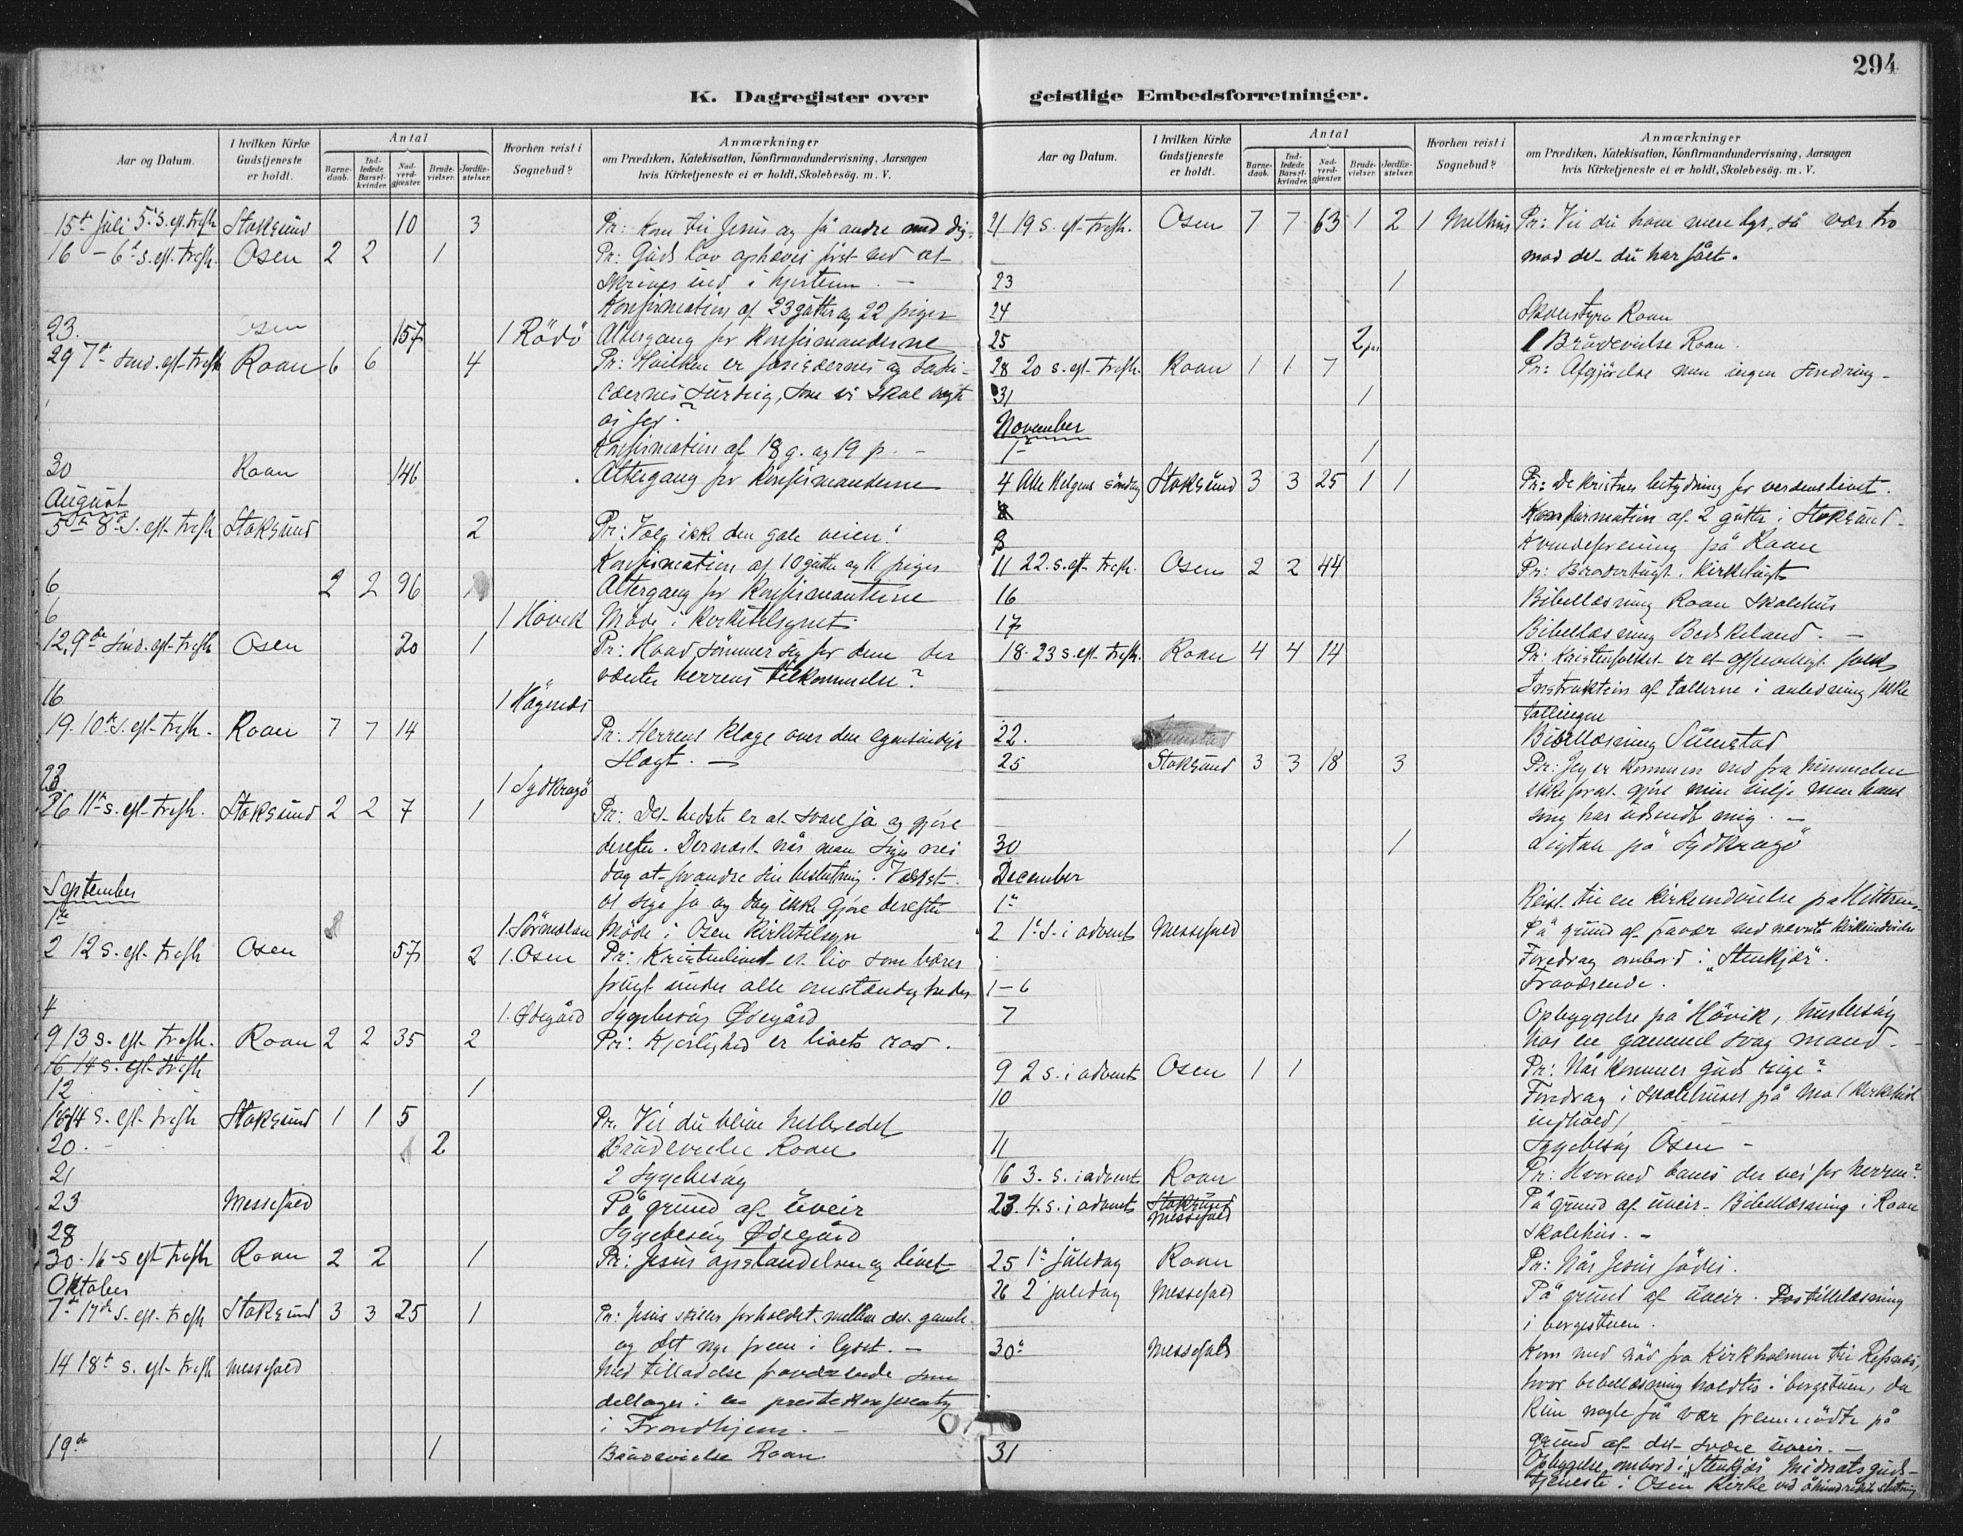 294
K. Dagregister over
Aar og Datum.
I hvilken Kirke Gudstjeneste er holdt.
Antal
Barnedaab.
Indledede Barselkvinder.
Nadverdgjæster.
Brudevielser.
Jordfæstelser.
Hvorhen reist i Sognebud?
Anmærkninger
om Prædiken, Katekisation, Konfirmandundervisning, Aarsagen
hvis Kirketjeneste ei er holdt, Skolebesøg. m. V.
15de Juli 5. S. eft. trefh. Stoksund 10 3 Pr: Kom til Jesus og få andre med dig.
16 - 6te S. eft. trefh. Osen 2 2 1 Pr: Guds lov ophæves først ved at
skrives ind i hjerterne. -
Konfirmation af 23 gutter og 22 piger
23. Osen 157 1 Rödö Altergang for Konfirmanderne
29 7de Sønd. eft. trefh Roan 6 6 4 Pr: Hvilken er farisæernes og
surdeig, som vi skal vogte
os for?
Konfirmation af 18 g. og 19 p. -
30 Roan 146 Altergang for Konfirmanderne
August
5te 8de S. eft. trefh Stoksund 2 Pr: Velg ikke den gale veien!
Konfirmation af 10 gutter og 11 piger
6 2 2 96 Altergang for Konfirmanterne
6 1 Hövik Möde i Kirketilsynet.
12. 9de Sönd. eft. trefh Osen 20 1 Pr: Hvad sömmer sig for dem der
venter herrens tilkommelse?
16 1 Hägnes
19. 10de S. eft. trefh. Roan 7 7 14 Pr: Herrens klage over den egensindige
Slægt. -
23. 1 Sydkragö
26 11te S. eft. trefh. Stoksund 2 2 7 1 Pr: Det bedste er at svare ja og gjöre
derefter. Dernæst når man siger nei
dog at forandre sin beslutning. Værst
at sige ja og dog ikke gjöre derefter
September
1ste 1. Sörmelan Möde i Osen Kirketilsyn
2 12 S. eft. trefh Osen 57 2 1. Osen Pr: Kristenlivet et liv som bærer
frugt under alle omstændigheder
4 1. Ödegård Sygebesög Ödegård
9 13 S. eft. trefh. Roan 2 2 35 2 Pr: Kjerlighed er livets rod.
16 14 S. eft. trefh
12 1
16 14 S. eft. trefh Stoksund 1 1 5 Pr. Vil du blive helbredet
20. 2 Brudevielse Roan
21 2 Sygebesög
23 Messefald På grund af uveir
28 Sygebesög Ödegård
30 - 16 S eft trefh Roan 2 2 1 Pr: Jesus opstandelsen og livet
Oktober
7de 17de S. eft. trefh Stoksund 3 3 25 1 Pr: Jesus stiller forholdet mellem det gamle
og det nye frem i lyset. -
14 18de S. eft. trefh Messefald Med tilladelse fraværende som
deltager i en prestekonferents
i Trondhjem. -
19de 1 Brudevielse Roan
geistlige Embedsforretninger.
Aar og Datum.
I hvilken Kirke Gudstjeneste er holdt.
Antal
Barnedaab.
Indledede Barselkvinder.
Nadverdgjæster.
Brudevielser.
Jordfæstelser.
Hvorhen reist i Sognebud?
Anmærkninger
om Prædiken, Katekisation, Konfirmandundervisning, Aarsagen
hvis Kirketjeneste ei er holdt, Skolebesøg. m. V.
21 19 S. eft. trefh. Osen 7 7 63 1 2 1 Melhus Pr: Vil du have mere lys, så vær tro
mod det du har fået.
23 1
24 Skolestyre Roan
25 2 par Brudevielse Roan.
28 20 S. eft. trefh. Roan 1 1 7 Pr: Afgjörelse men ingen
31 1
November
1ste 1
4 Alle Helgens söndag Stoksund 3 3 25 1 1 Pr: De kristnes betydning for verdenslivet.
Konfirmation af 2 gutter i Stoksund.
8 Kvindeforening på Roan
11 22. S. eft. trefh. Osen 2 2 44 Pr: Brodertugt. Kirketugt
16 Bibellæsning Roan Skolehus
17 Bibellæsning Beskeland. -
18. 23 S. eft. trefh. Roan 4 4 14 Pr: Kristenfolket er et offervilligt folk
Instruktion af tællerne i anledning folke
tællingen
22. Bibellæsning Sumstad
25 Stoksund 3 3 18 3 Pr: Jeg er kommen ned fra himmelen
ikke for at gjöre min vilje men hans
som har udsendt mig. -
30 1 Ligtale på Sydkragö
December
1ste Reist til en kirkeindvielse på Hitteren.
2 1ste S. i advent Messefald På grund af fravær ved nævnte kirkeindvielse
Foredrag ombord i "Stenkjær".
1-6 Fraværende.
7 Opbyggelse på Hövik, husbesög
hos en gammel svag mand. -
9 2 S. i advent Osen 1 1 Pr: Når kommer Guds rige?
10 Foredrag i skolehuset på Mo (
indhold)
11 Sygebesög Osen -
16 3. S. i advent Roan Pr: Hvorved banes der vei for herren?
23. 4. S. i advent Stoksund Messefald På grund af uveir. Bibellæsning i Roan
Skolehus. -
25 1ste juledag Roan Pr: Når Jesus födes.
26 2 juledag Messefald På grund af uveir. Postillelæsning
i borgestuen.
30te Messefald Kom med nöd fra Kirkholmen til Refsnes,
hvor bibellæsning holdtes i borgstuen, da
kun nogle få var fremmödte på
grund af det svære uveir. -
31 Opbyggelse ombord i "Stenkjær" Midnatsguds-
tjeneste i Osen Kirke ved århundredets slutning